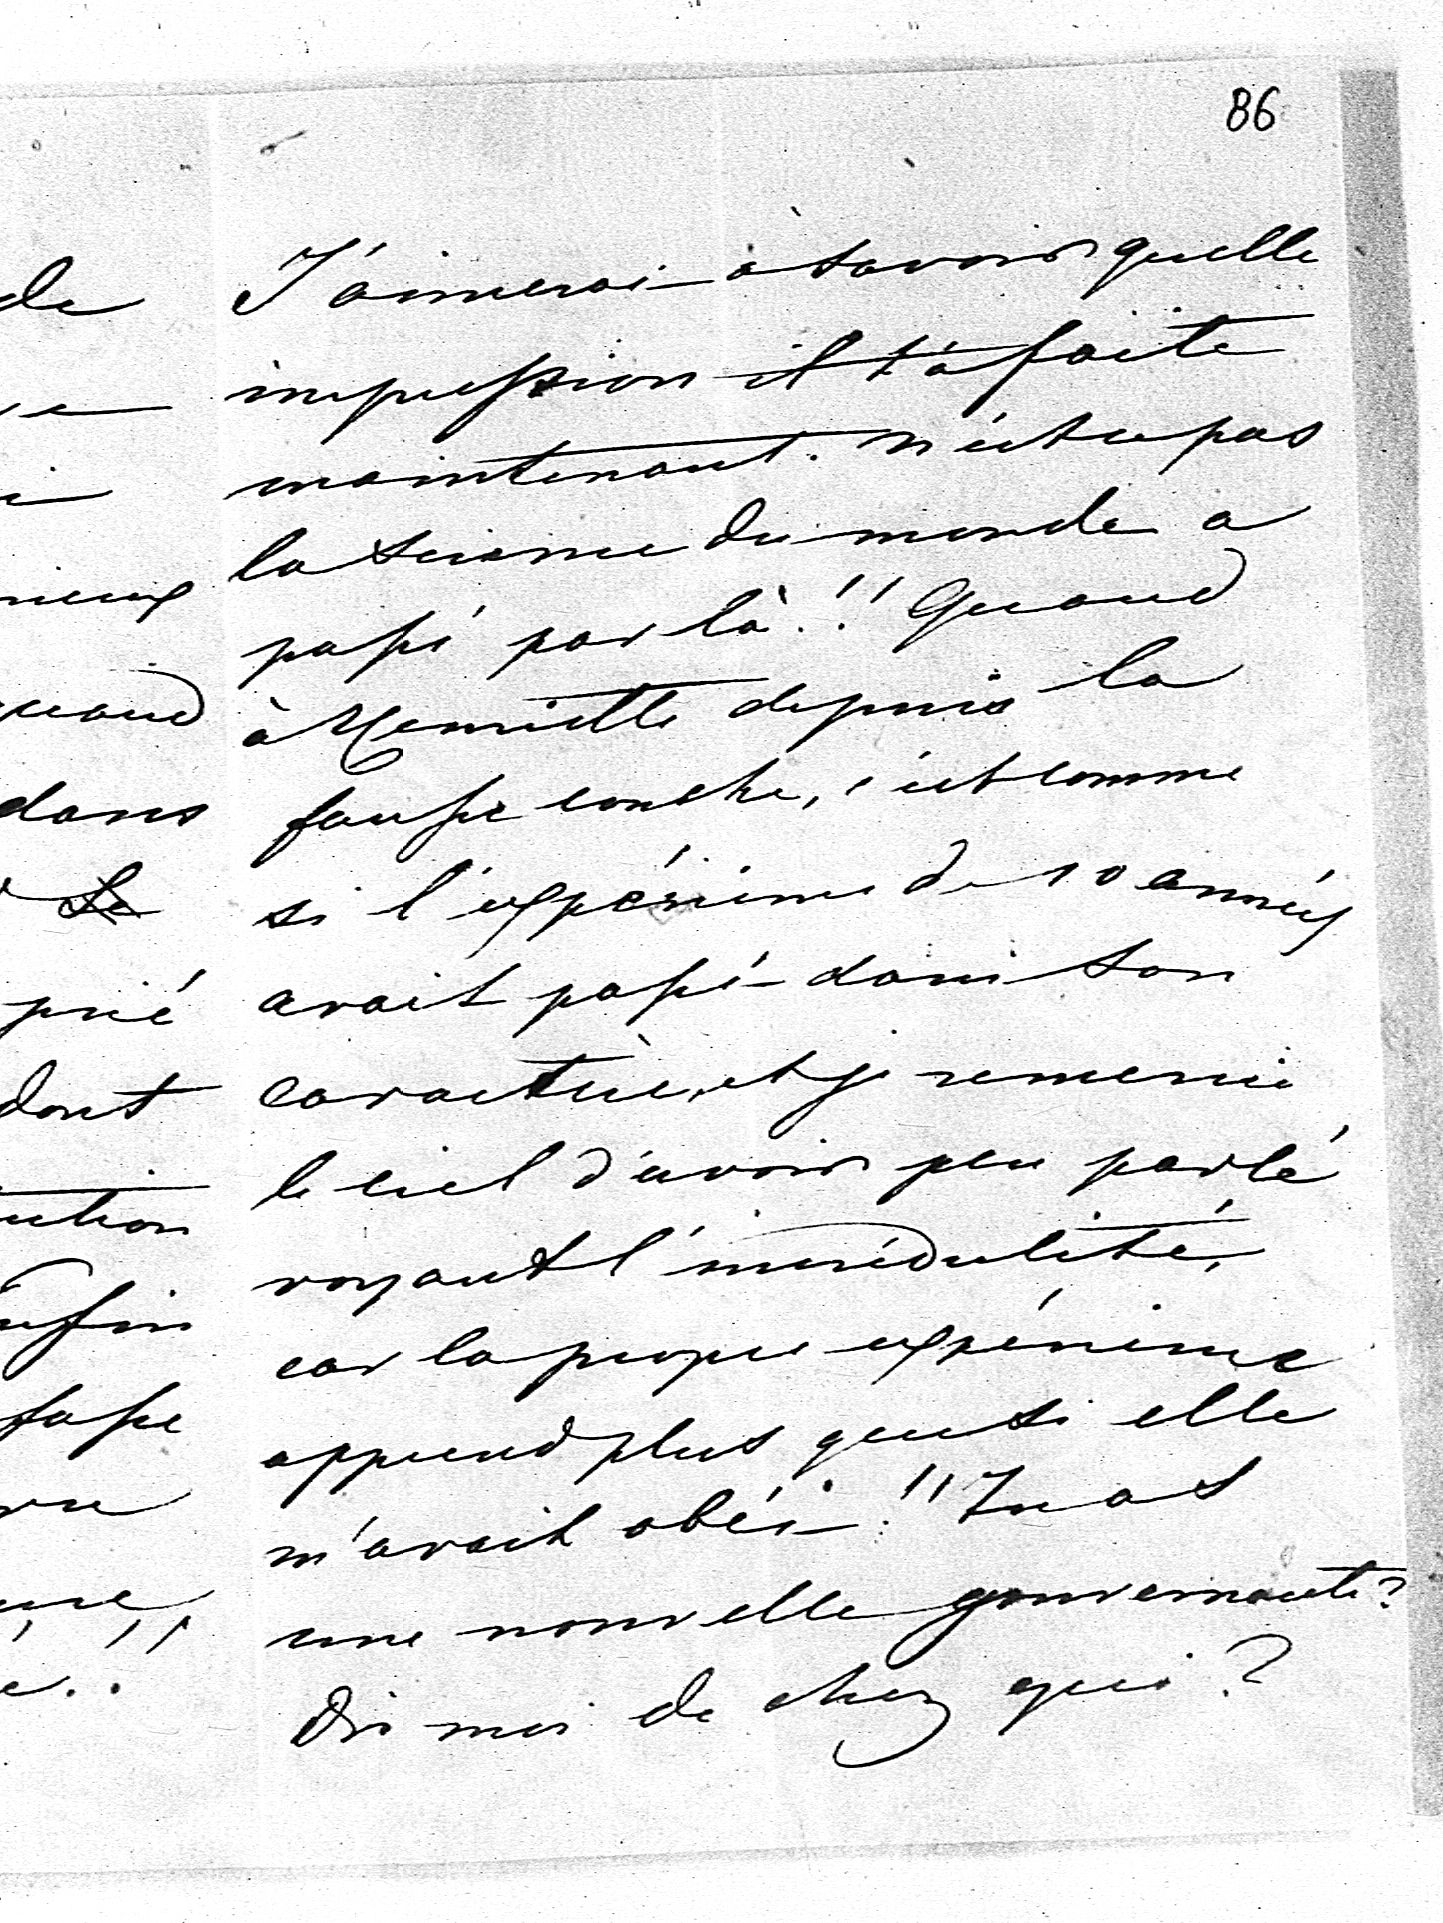 86
de
J'aimerai à savoir quelle
impression il t'a faite
maintenant. N'est ce pas
la science du monde a
passé par là!! Quand
à Henriette depuis la
fausse couche, c'est comme
si l'expérience de 10 années
avait passé dans son
caractère, et je remercie
le ciel d'avoir peu parlé
voyant l'incrédulité,
car la propre expérience
apprend plus que si elle
m'avait obéi!! Tu as
une nouvelle gouvernante?
Dis moi de chez qui?
quand
dans
prié
dont